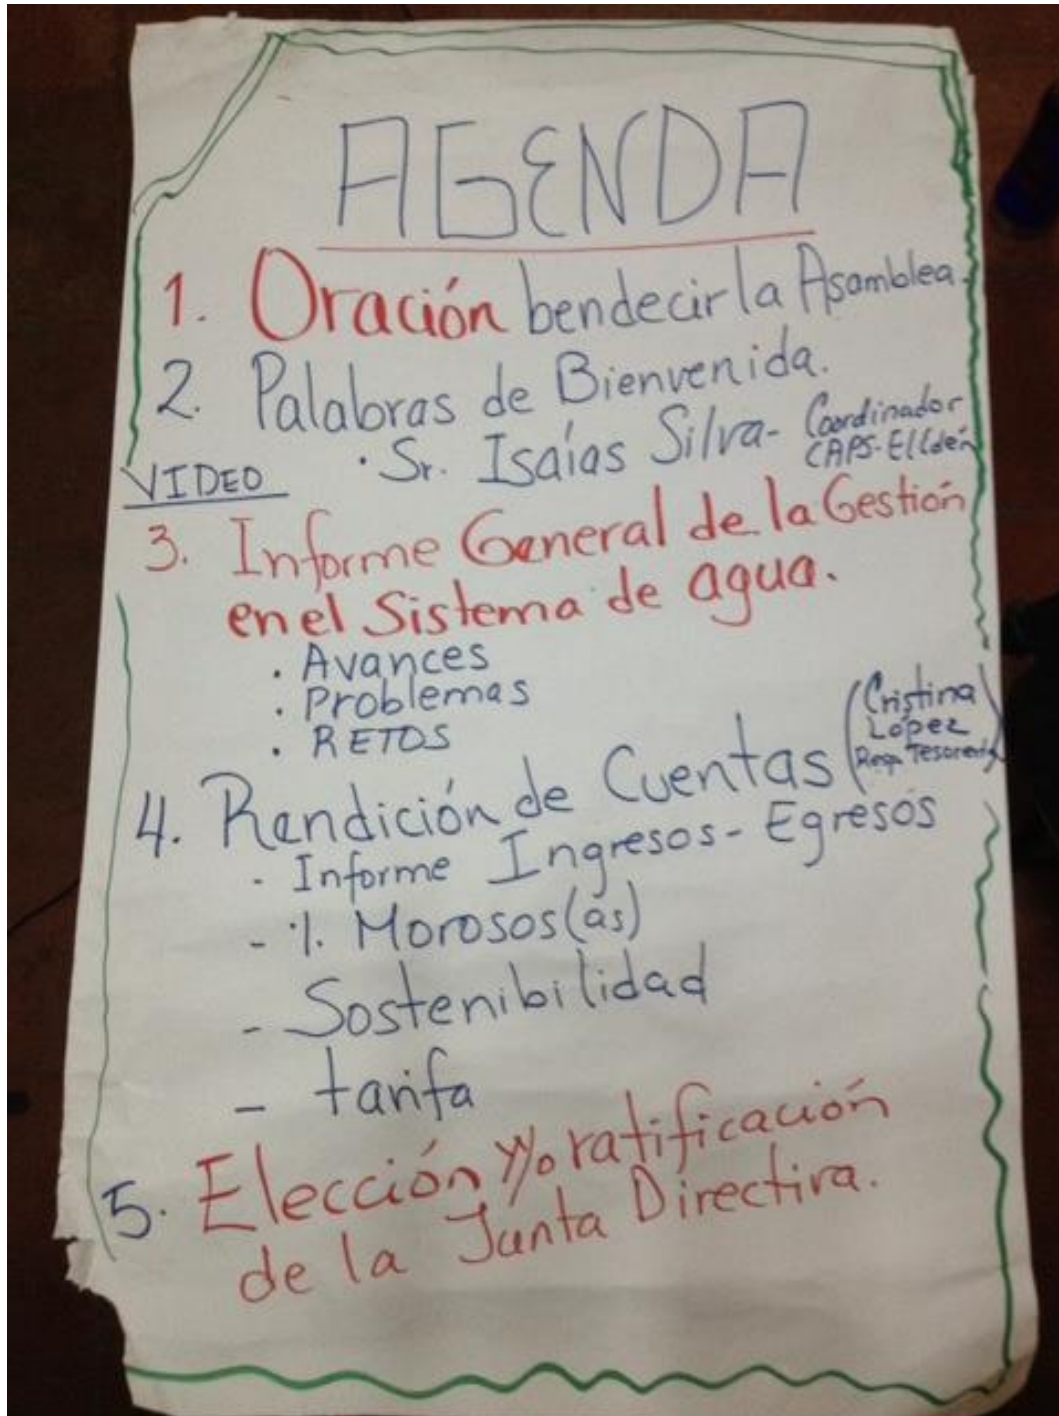 AGENDA
1. Oración bendecir la Asamblea.
2. Palabras de Bienvenida.
· Sr. Isaías Silva- Coordinador
CAPS-El Edén
VIDEO
3. Informe General de la Gestión
en el Sistema de agua.
· Avances
· Problemas
· RETOS
4. Rendición de Cuentas (Cristina
López
Resp. Tesorería)
- Informe Ingresos - Egresos
- % Morosos(as)
- Sostenibilidad
- tarifa
5. Elección y/o ratificación
de la Junta Directiva.